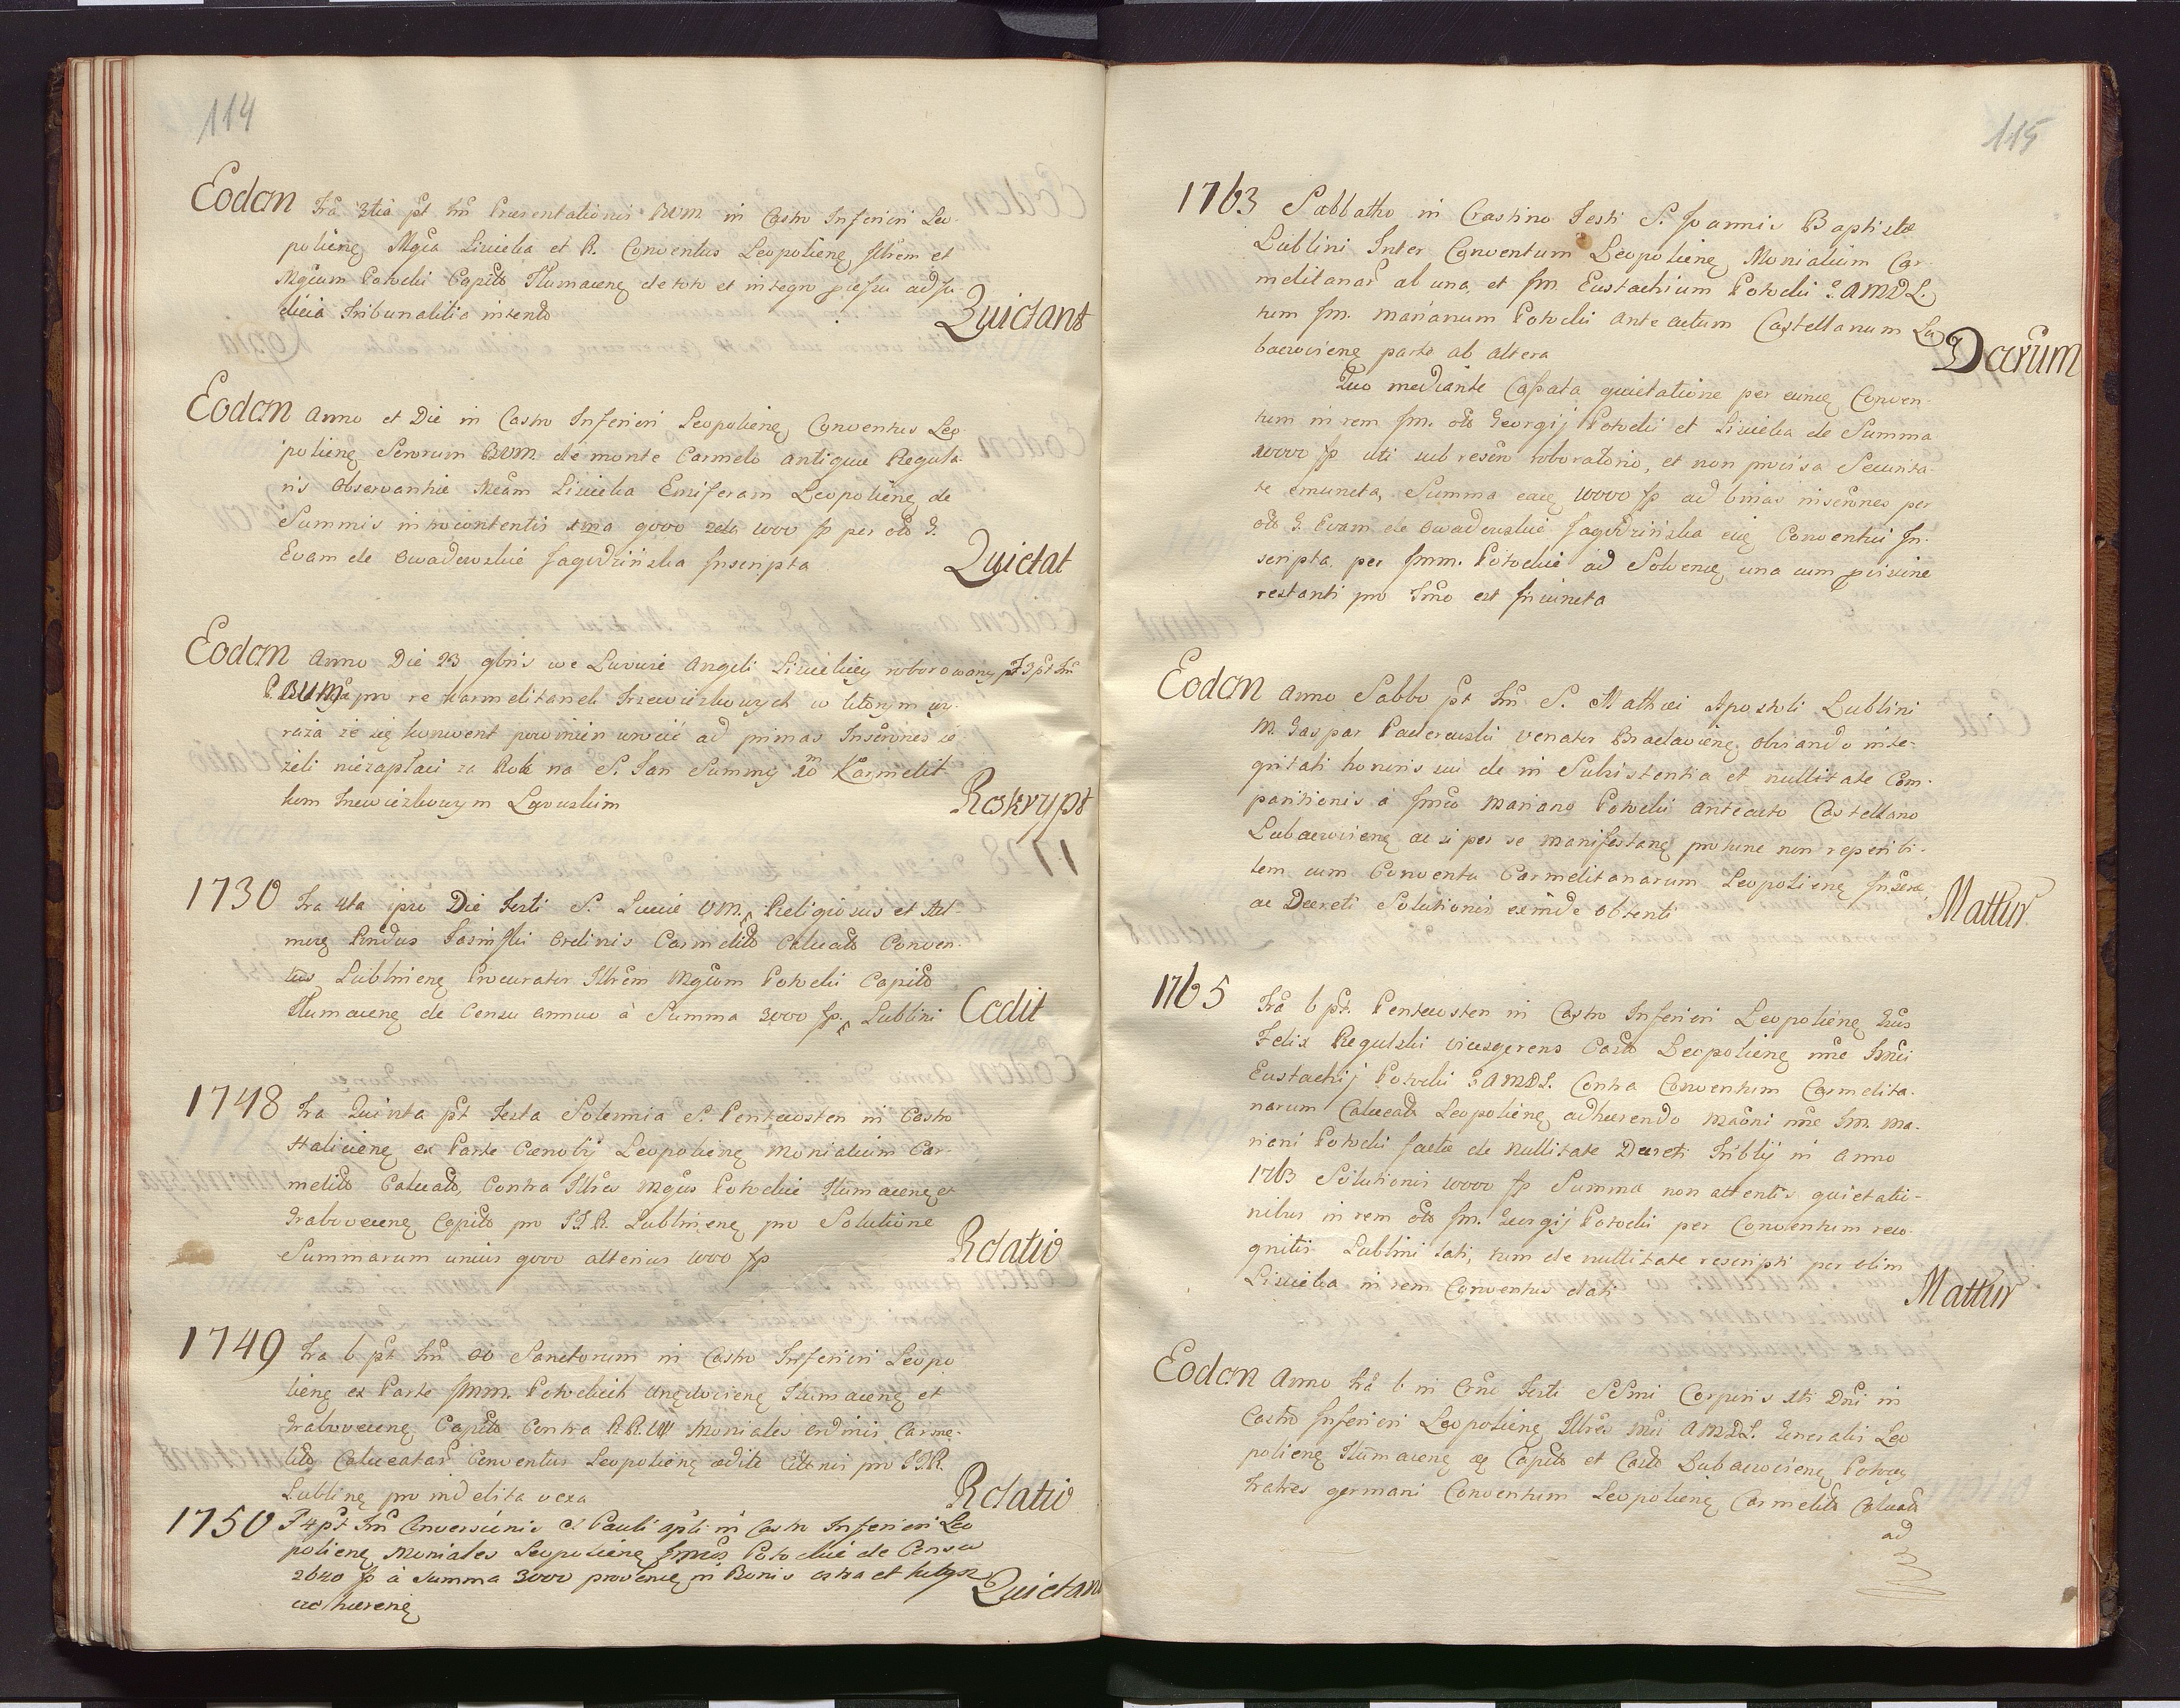 114
Eodem Fra 3tia pt Fm Praesentationis BVM in Castro Inferiori Leo-
polieng Mgca Sizicka et R. Conventus Leopolieng Illrem et
Mgcum Potocki Capit Tlumaceng de toto et integro ad Ju-
dicia Tribunalitia intento Quictant
Eodem Anno et Die in Castro Inferiori Leopolieng Conventus Leo-
polieng Sororum BVM de monte Carmelo antiquae Regula-
ris Observantiae Sizicka Leopolieng de
Summis in contentis una 9000 1000 fp per
Evam de Owadowskie Jagodzińska Inscripta Quictat
Eodem Anno Die 23 9bris we Lwowie Angeli roborowany
BVM pro re Karmelitanek Trzewiczkowych w ktorym wy-
raza że się konwent powinien wrocić ad primas ie-
żeli niezapłaci za Rok na S. Jan Summy 10m Karmelit
kom Trzewiczkowym Lwowskim Reskrypt
1730 Fra 4ta Die Festi S. Luciae VM. Religiosus et
Jasinski Ordinis Carmelit Calceat Conven-
tus Lublineng Procurator Illrem Mgcum Potocki Capit
Tlumaceng de Censu annuo à Summa 3000 fp. Lublini Cedit
1748 Fra Quinta pt Festa Solennia S. Pentecosten in Castro
Haliciene ex Parte Caenobij Leopolieng Monialium Car-
melit Calceat, Contra Illres Mgcos Potockie Tlumaceng et
Graboveceng Capit pro T.R. Lublineng pro Solutione
Summarum unius 9000 alterius 1000 fp Relatio
1749 Fra 6 pt Fm OO Sanctorum in Castro Inferiori Leopo
lieng ex Parte Potockich Tlumaceng et
Graboveceng Capit Contra R.R. Moniales ordinis Carme-
lit Calceatar Conventus Leopolieng pro T.R.
Lubling pro indebita vexa Relatio
1750 F 4 pt Fm Conversionis S Pauli Apli in Castro Inferiori Leo
polieng Moniales Leopolieng Potockie de Censu
2640 fp à Summa 3000 proveng in Bonis et
adhaereng Quictant
115
1763 Sabbatho in Crastino Festi S. Joannis Baptistae
Lublini Inter Conventum Leopolieng Monialium Car-
melitanar ab una, et Jm. Eustachium Potocki G.A.M.D.L.
tum Jm. Marianum Potocki Anteactum Castellanum Lu-
baczovieng parte ab altera Decretum
Quo mediante Cassata quietatione per eung Conven-
tum in rem Jm. olo Georgij Potocki et Sizicka de Summa
10000 fp uti sub roboratorio, et non praevisa Securita-
te emuncta, Summa eaq 10000 fp ad binas per
olo G. Evam de Owadowskie Jagodzińska eiq Conventui In-
scripta, per Jmm. Potockie ad Solveng una cum
restanti pro est iniuncta
Eodem Anno Sabbo pt Fm S. Mathaei Apostoli Lublini
M. Gaspar Paderewski venator Braclavieng obviando inte-
gritati honoris sui de in Subsistentia et nullitate Com-
paritionis à Mariano Potocki anteacto Castellano
Lubaczovieng ac si per se manifestang protunc non reperibi-
lem cum Conventu Carmelitanarum Leopolieng
ac Decreti Solutionis exinde obtenti Mattur
1765 Fra 6 pt Pentecosten in Castro Inferiori Leopolieng
Felix Regulski vicesgerens Castr Leopolieng nne
Eustachij Potocki G.A.M.D.L. Contra Conventum Carmelita-
narum Calceat Leopolieng adhaerendo nne Jm. Ma-
riani Potocki factae de nullitate Decreti Triblij in Anno
1763 Solutionis 10000 fp Summa non attentis quietatio-
nibus in rem olo Jm. Georgij Potocki per Conventum reco-
gnitis Lublini lati, tum de nullitate rescripti per olim
Sizicka in rem Conventus dati Mattur
Eodem Anno Fra 6 in Crno Festi SSmi Corporis Xti Dni in
Castro Inferiori Leopolieng Illres A.M.D.L. Generalis Leo
polieng Tlumaceng Capit et Castr Lubaczovieng Potoccy
Fratres germani Conventum Leopolieng Carmelit Calceat
ad